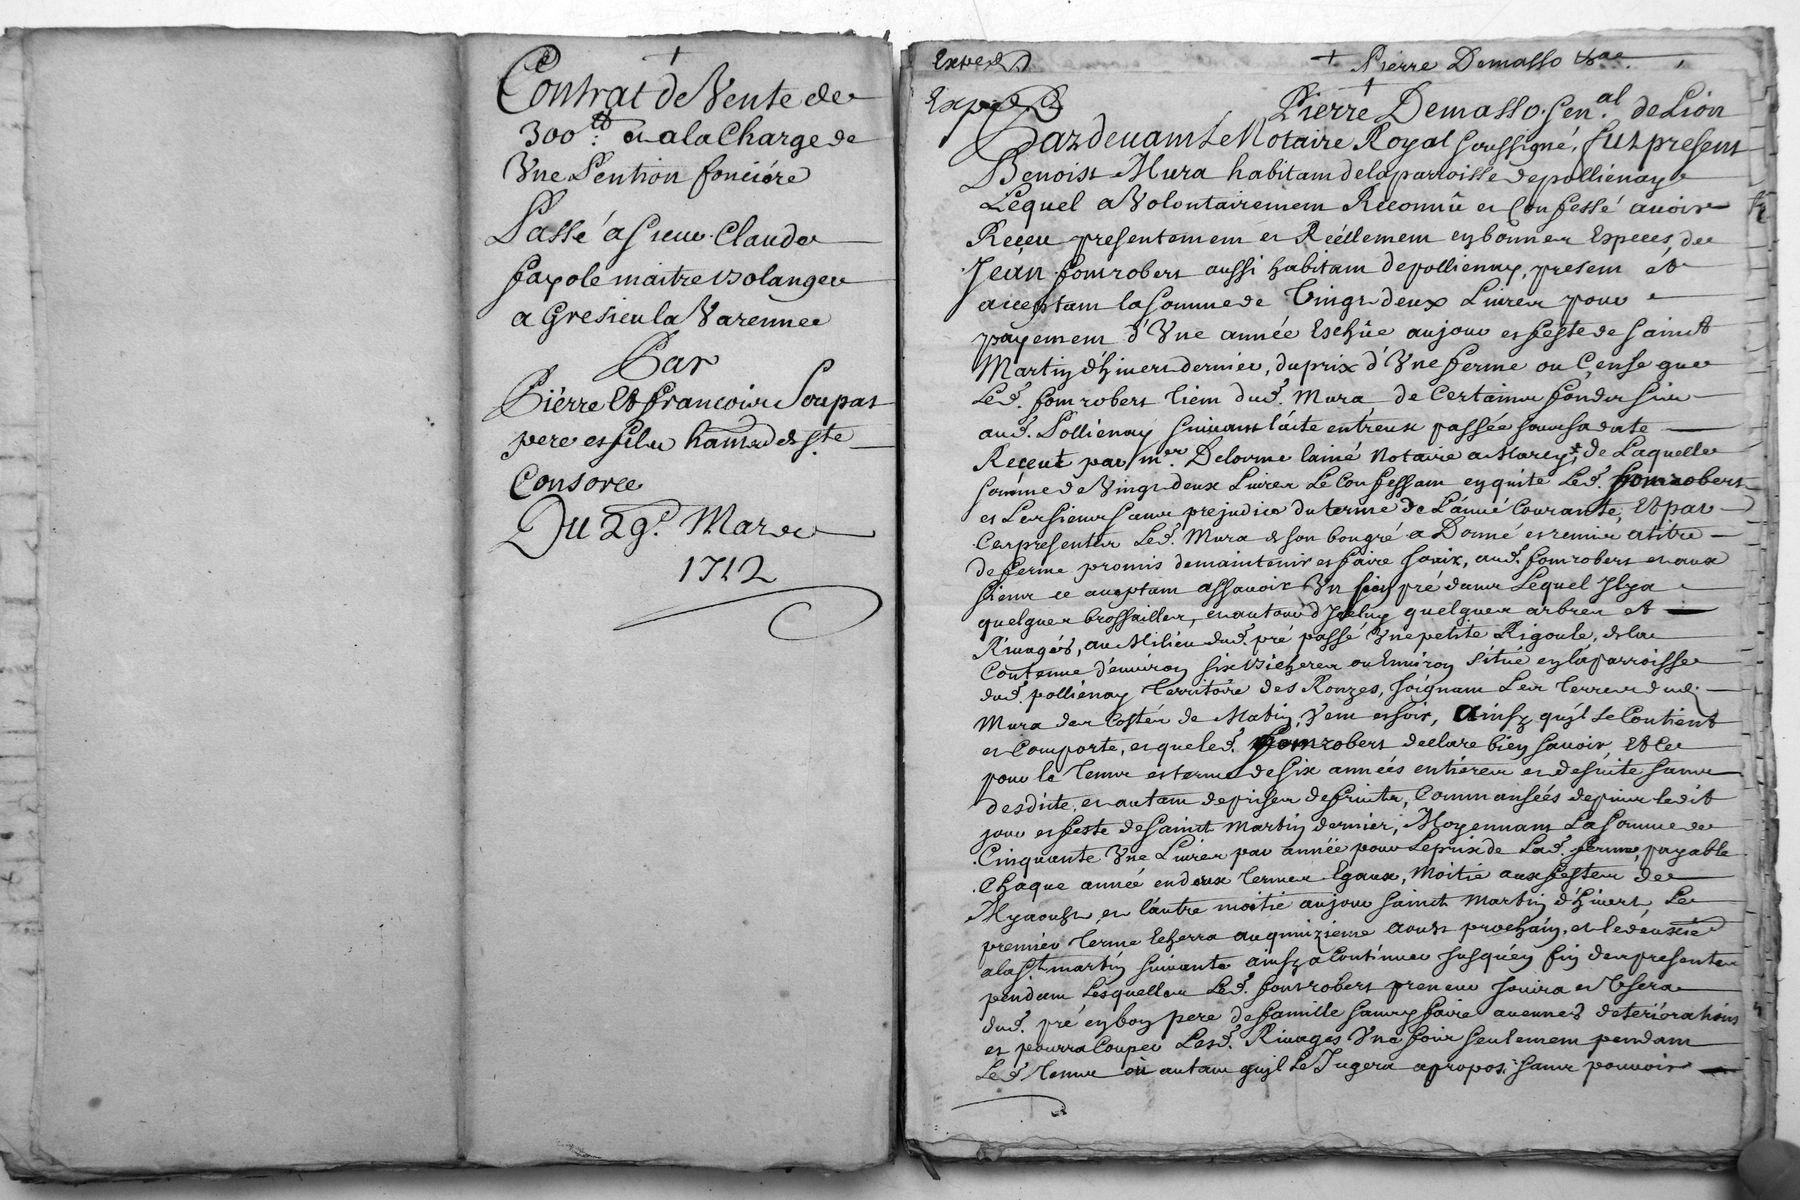 Contrat de Vente de
300 tt: et a la Charge de
Vne Pention fonciére
Passé a sieur Claude
fayole maitre Bolanger
a Gresieu la Varenne
Par
Piérre Et francois Soupat
pere et fils hants de ste
Consorce
Du 29e Mars
1712
Exped
+ Pierre Demasso
Exped
Pierre Demasso. Gen.al de Lion
Pardeuant Le Notaire Royal soussigné, fut present
Benoist Mura habitant de la parroisse de pollienay
Lequel a Volontairement Reconnû et Confessé auoir
Reçeu presentement et Reéllement en bonnes Especes, de
Jean fontrobert aussi habitant de pollienay, present et
acceptant la somme de Vingt deux Liures pour
payement d'Vne année Eschûe au jour et feste de saint
Martin d'hiuert dernier, du prix d'Vne ferme ou Cense que
Led. fontrobert tient dud. Mura de Certains fonds sis
aud. Pollienay suiuant l'acte entreux passée sous sa date
Reçeut par mer. Delorme lainé Notaire a Marcy, de Laquelle
somme de Vingt deux Liures Le Confessant en quite Led. fontrobert
et Les siens sans prejudice du terme de L'anné Courante, Et par
Ces presentes Led. Mura de son bon gré a Donné et remis a titre
de ferme promis de maintenir et faire jouir, aud. fontrobert et aux
siens ce acceptant assauoir Vn sien pré dans Lequel Il y a
quelques brossailles, et autour d'Iceluy quelques arbres et
Riuages, au Milieu dud. pré passé Vne petite Rigoule, de la
Contenue d'enuiron six Bicherees ou Enuiron situé en la parroisse
dud. pollienay Territoire des Ronzes, joignant Les Terres dud.
Mura des Costés de Matin, Vent et soir, Ainsy qu'il se Contient
et Comporte, et que led. fontrobert declare bien sauoir, Et Ce
pour le Temps et terme de six années entieres et de suite sans
desdite, et autant de prises de fruits, Commansées depuis ledit
jour et feste de Saint Martin dernier, Moyennant La somme de
Cinquante Vne Liures par année pour Le prix de Lad. ferme, payable
Chaque année en deux Termes Egaux, Moitié aux festes de
My aoust, et l'autre moitié au jour saint Martin d'hiuert Le
premier Terme Echerra au quinzieme aoust prochain, et le deuxie
a la St martin suiuante ainsy a Continuer jusqu'en fin des presentes
pendant Lesquelles Led. fontrobert preneur jouira et Vsera
dud. pré en bon pere de famille sans y faire aucunes deteriorations
et pourra Couper Lesd. Riuages Vne fois seulement pendant
Led. Temps où autant qu'il Le Jugera apropos, sans pouuoir